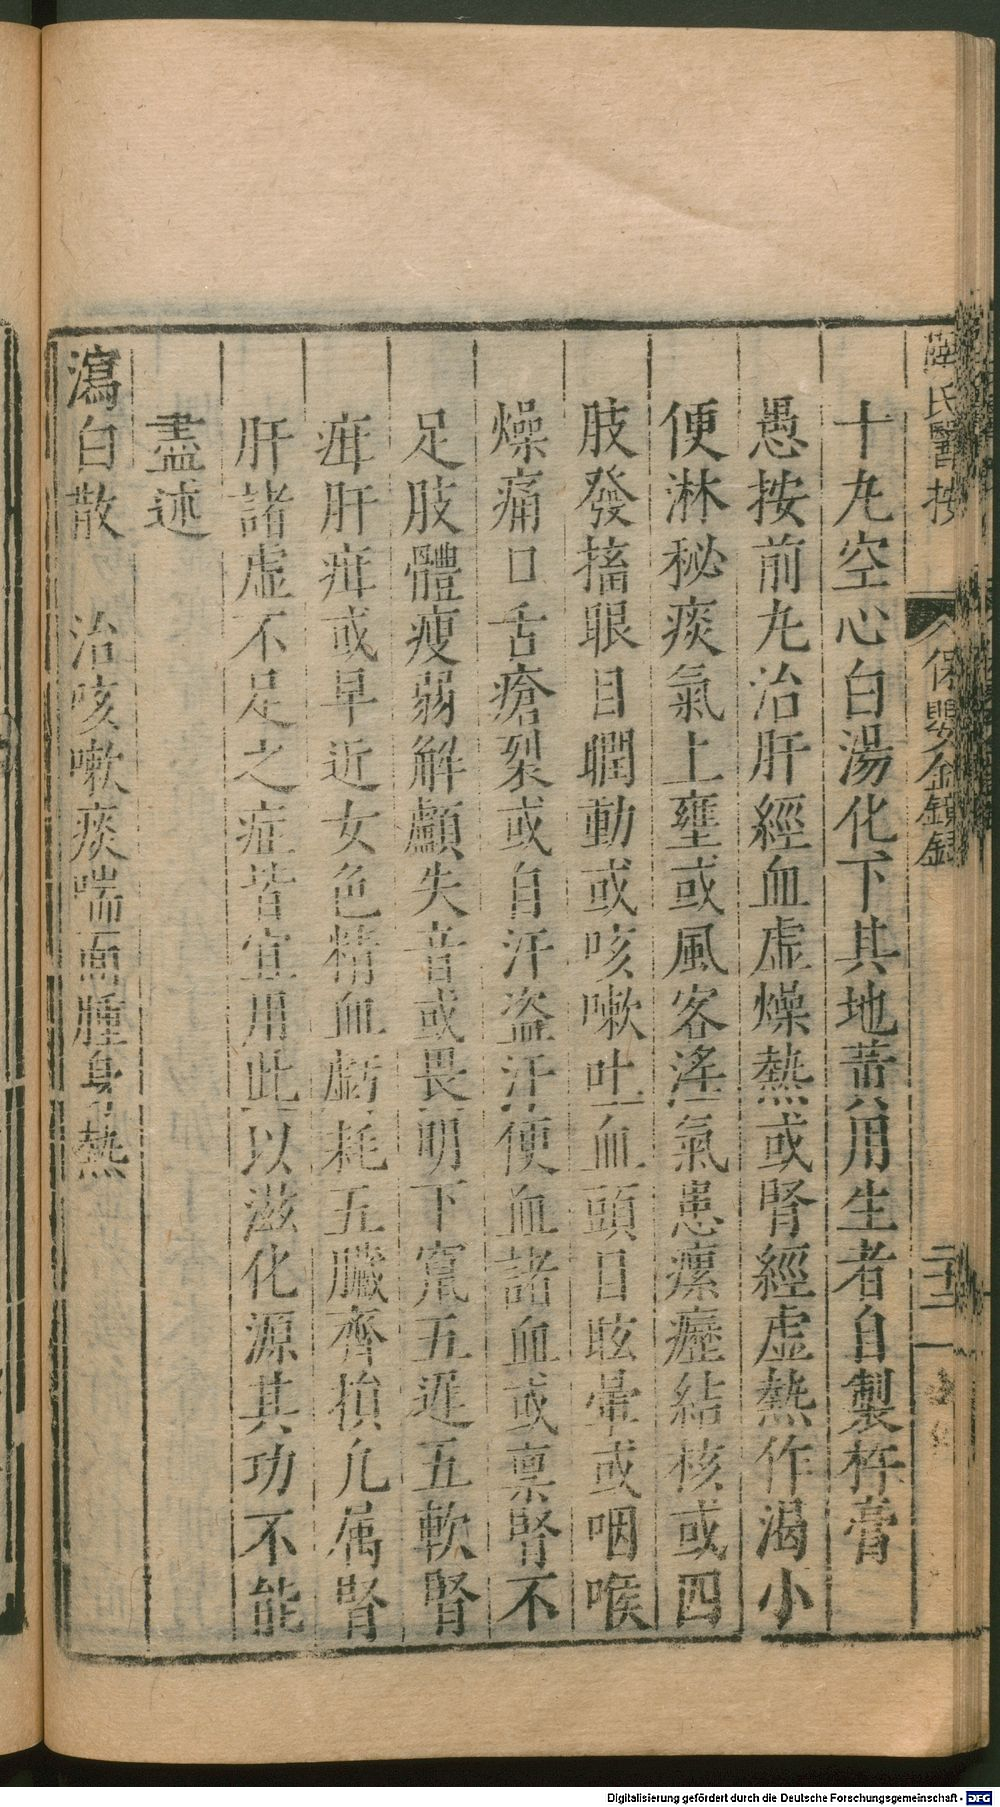 薛氏醫按
保嬰金鏡録
二十二
十九空心白湯化下其地黃用生者自製杵膏
愚按前九治肝經血虛燥熱或腎經虛熱作渴小
便淋秘痰氣上壅或風客淫氣患瘰癧結核或四
肢發搐眼目瞤動或咳嗽吐血頭目眩暈或咽喉
燥痛口舌瘡裂或自汗盗汗便血諸血或禀腎不
足肢體瘦弱解顱失音或畏明下竄五遲五軟腎
疳肝疳或早近女色精血虧耗五臟齊損凢属腎
肝諸虛不足之症皆宜用此以滋化源其功不能
盡述
瀉白散　治咳嗽痰喘面腫身熱
Digitalisierung gefördert durch die Deutsche Forschungsgemeinschaft - DFG